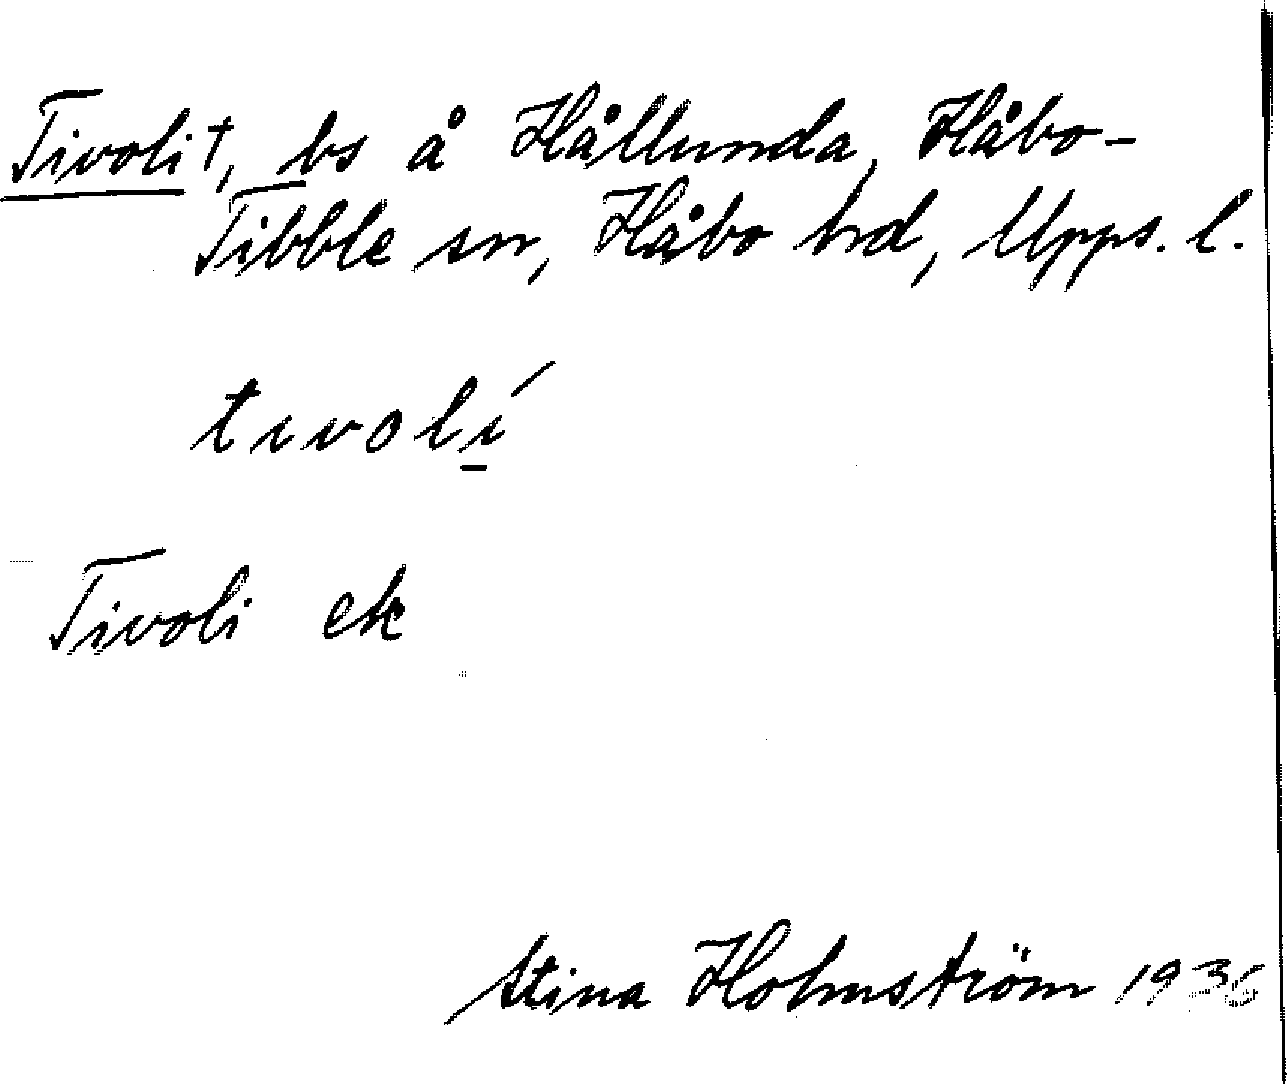 Tivoli†, bs å Hållunda, Håbo-
Tibble sn, Håbo hd, Upps. l.
tıvolí
Tivoli ek
Stina Holmström 1936